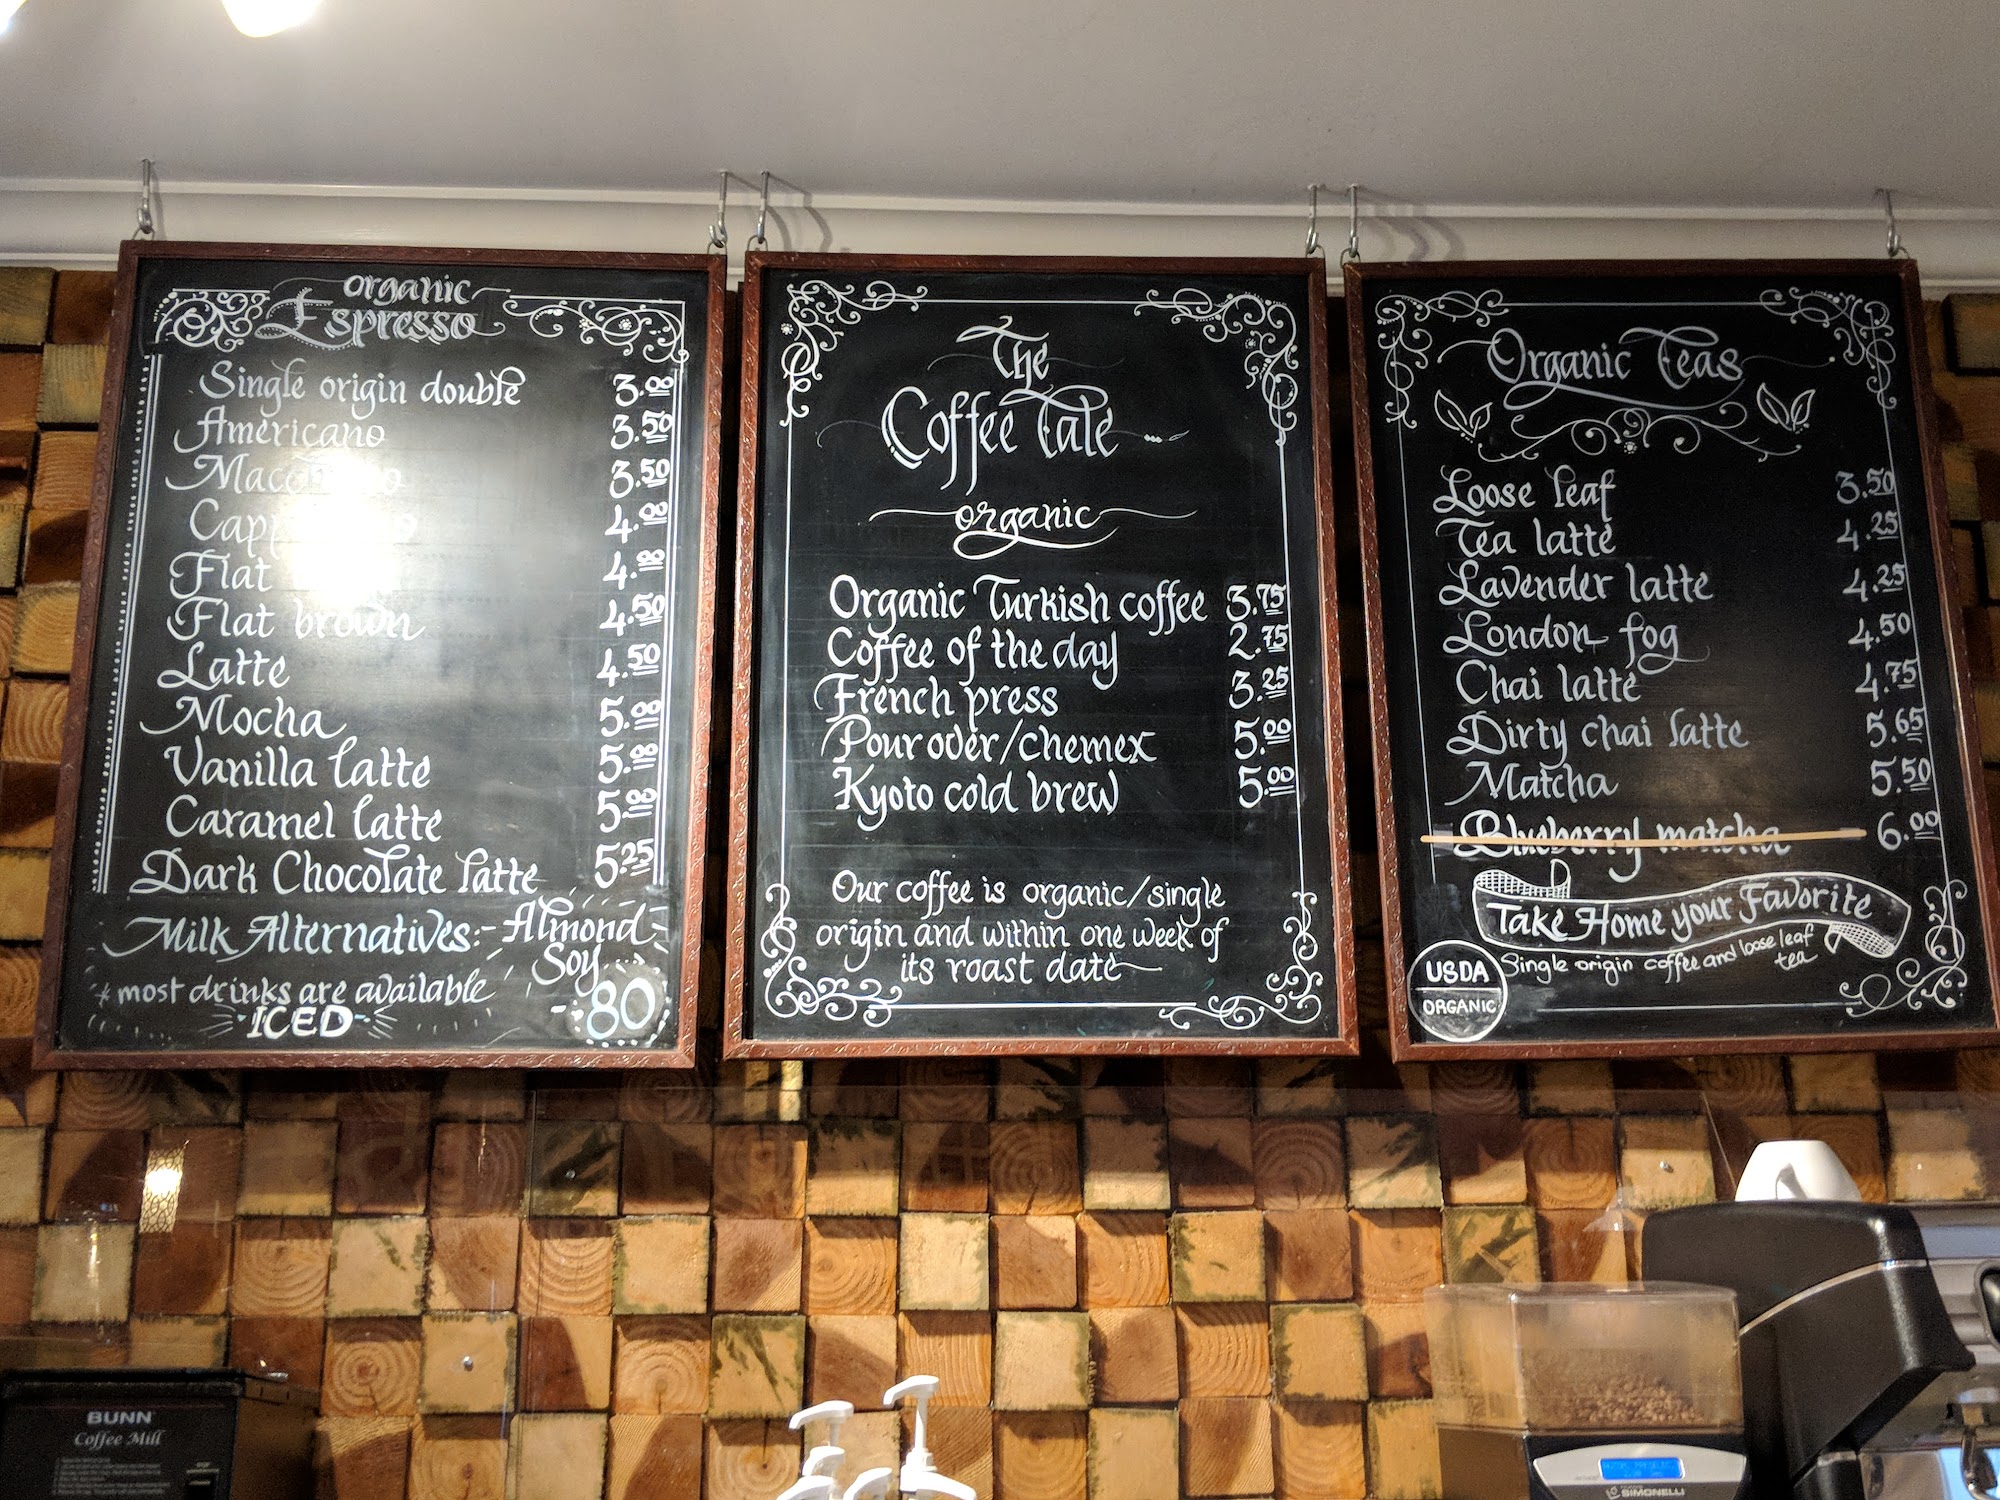 organic
Espresso
Single origin double 3.00
Americano 3.50
3.50
4.00
Flat 4.00
Flat brown 4.50
Latte 4.50
Mocha 5.00
Vanilla latte 5.00
Caramel latte 5.00
Dark Chocolate latte 5.25
Milk Alternatives:- Almond
Soy
- 80
* most drinks are available
ICED
The
Coffee Tale
organic
Organic Turkish coffee 3.75
Coffee of the day 2.75
French press 3.25
Pour over/chemex 5.00
Kyoto cold brew 5.00
Our coffee is organic/single
origin and within one week of
its roast date
Organic Teas
Loose leaf 3.50
Tea latte 4.25
Lavender latte 4.25
London fog 4.50
Chai latte 4.75
Dirty chai latte 5.65
Matcha 5.50
Blueberry matcha 6.00
Take Home your Favorite
Single origin coffee and loose leaf
tea
USDA
ORGANIC
BUNN
Coffee Mill
SIMONELLI